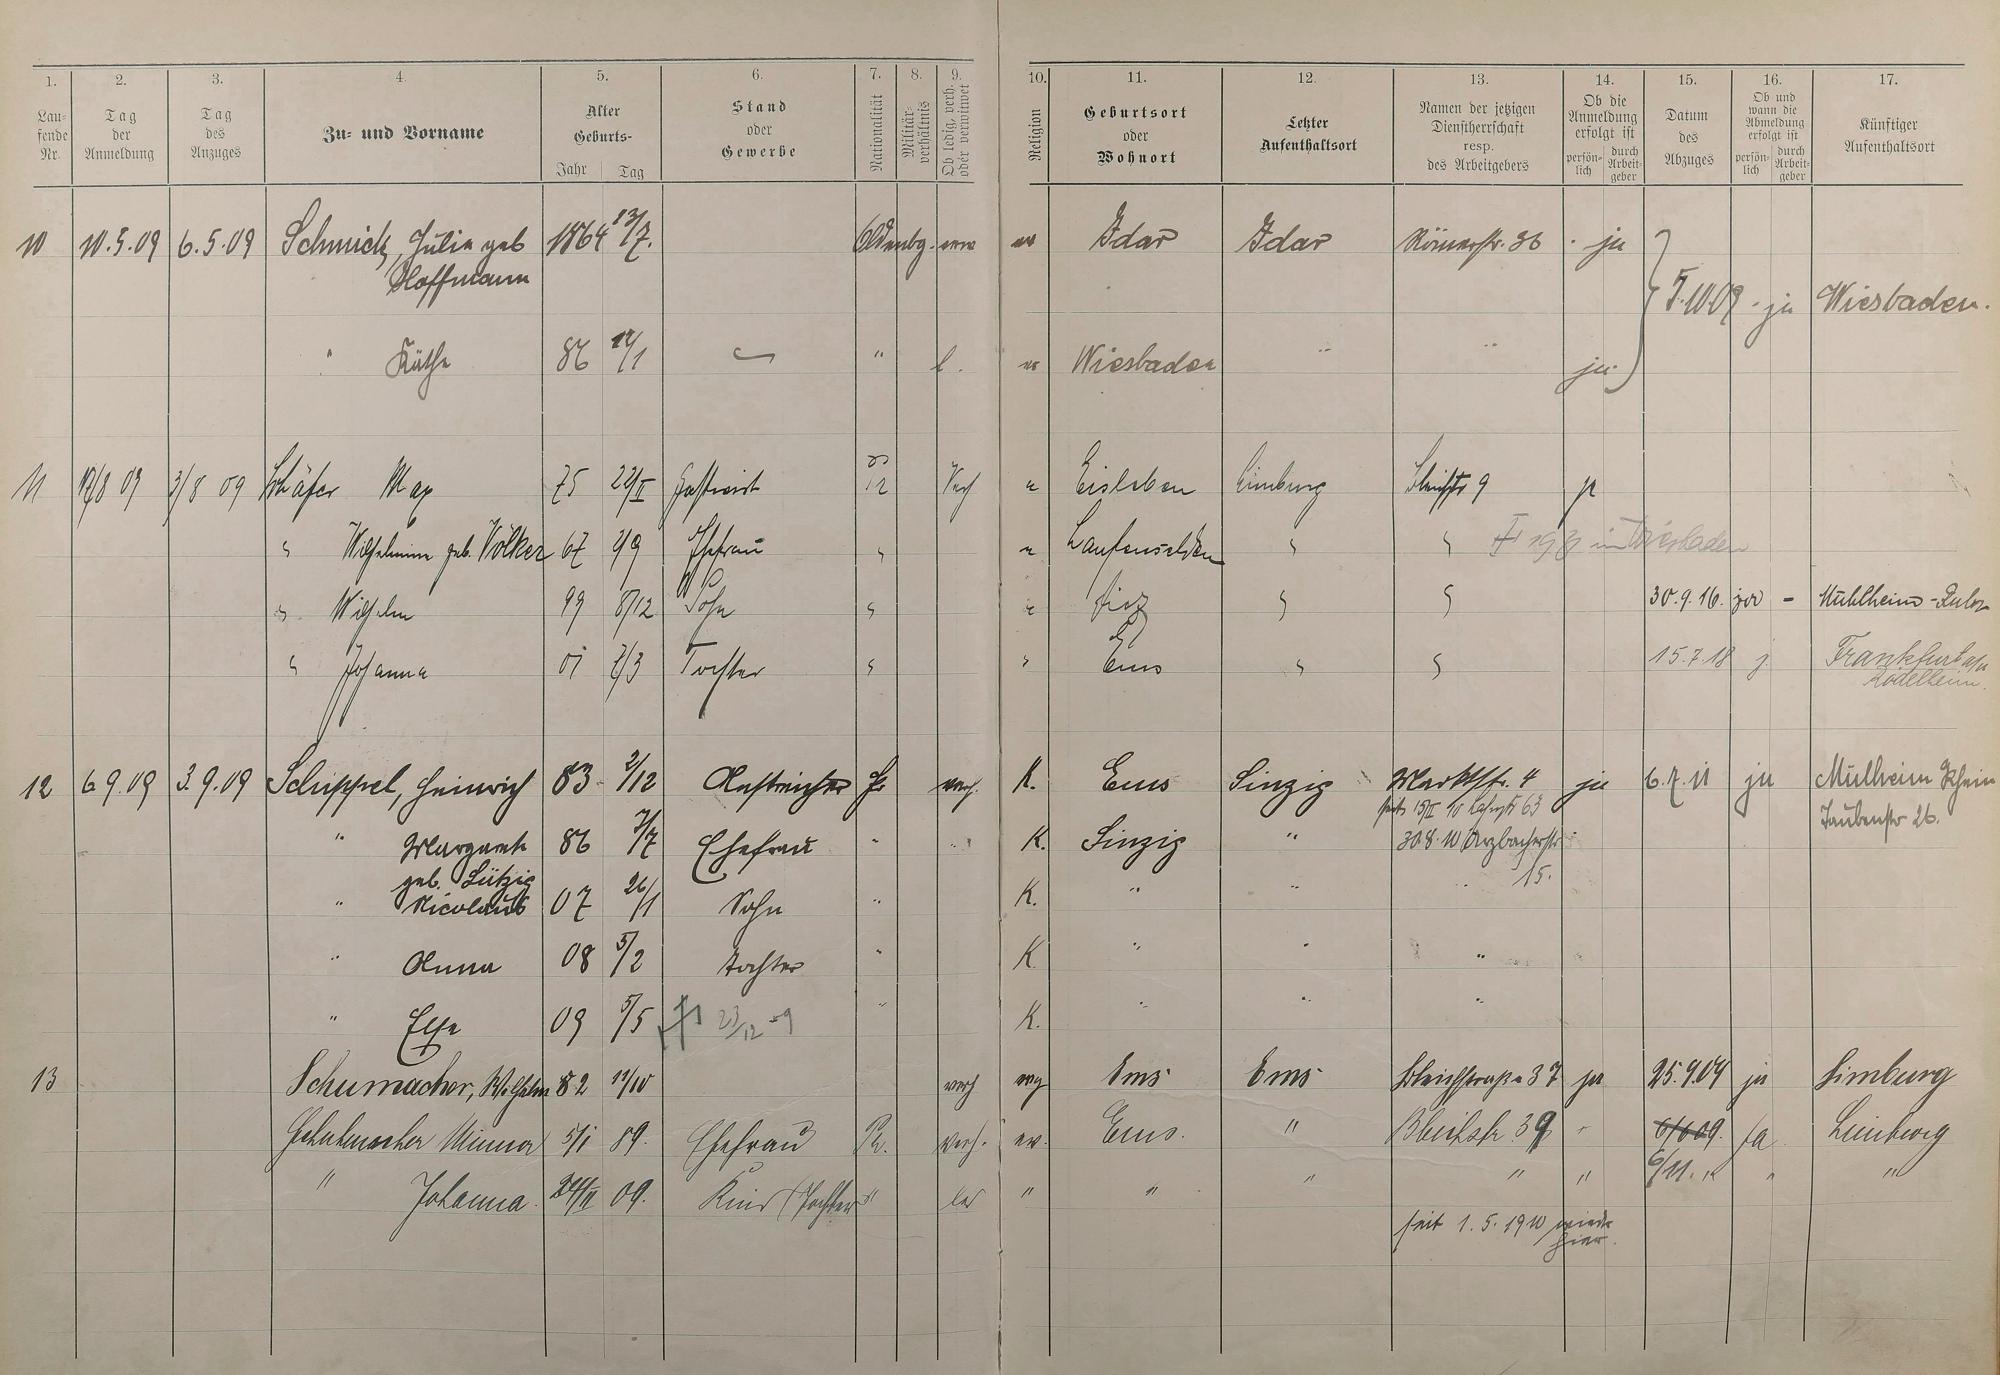 1. 2. 3. 4. 5. 6. 7. 8. 9. 10. 11. 12. 13. 14. 15. 16. 17.
Lau-
fende
Nr.
Tag
der
Anmeldung
Tag
des
Anzuges
Zu- und Vorname
Alter
Geburts-
Jahr Tag
Stand
oder
Gewerbe
Nationalität
Militär-
verhältnis
Ob ledig, verh.
oder verwitwet
Religion
Geburtsort
oder
Wohnort
Letzter
Aufenthaltsort
Namen der jetzigen
Dienstherrschaft
resp.
des Arbeitgebers
Ob die
Anmeldung
erfolgt ist
persön-
lich
durch
Arbeit-
geber
Datum
des
Abzuges
Ob und
wann die
Abmeldung
erfolgt ist
persön-
lich
durch
Arbeit-
geber
Künftiger
Aufenthaltsort
10 10.5.09 6.5.09 Schmick, Julia geb 1864 13/7. Oldenbg. ev Idar Idar Römerstr. 36 ja
Hoffmann
5.10.09 - ja Wiesbaden.
" Käthe 86 " l. ev Wiesbaden " " ja
11 3/8 09 Schäfer Max 75 22/II Gastwirt Verh Eisleben Limburg Bleichstr 9 ja
" Wilhelmine geb. Völker 67 2/9 Ehefrau " Laufenselden " " in Wiesbaden
" Wilhelm 99 8/12 Sohn " Diez " " 30.9.16. ja - Mühlheim-Ruhr
" Johanna 01 7/3 Tochter " " Ems " " 15.7.18 j. Frankfurt a/M
Rödelheim.
12 6.9.09 3.9.09 Schippel, Heinrich 83 2/12 Anstreicher Pr verh. K. Ems Sinzig Marktstr. 4 ja 6.7.11 ja Mülheim Rhein
seit 15/II 10 Lahnstr 63
Taubenstr 26.
" Margareth 86 7/7 Ehefrau " " K. Sinzig " 30.8.10 Arzbacherstr
geb. Lützig
15.
" Nicolaus 07 26/1 Sohn " K. " "
" Anna 08 5/2 Tochter " K " " "
" Else 09 5/5 23/12 09 " K. " " "
13 Schumacher, Wilhelm 82 11/10 verh evg Ems Ems Bleichstraße 37 ja 25.9.09 ja Limburg
Schuhmacher Minna 5/1 89. Ehefrau Pr. verh. ev. Ems. " Bleichstr. 39 6/11 09. ja Limburg
" Johanna 09. Kind (Tochter " led " " " " " 6/11. " " "
seit 1.5.1910 wieder
hier.